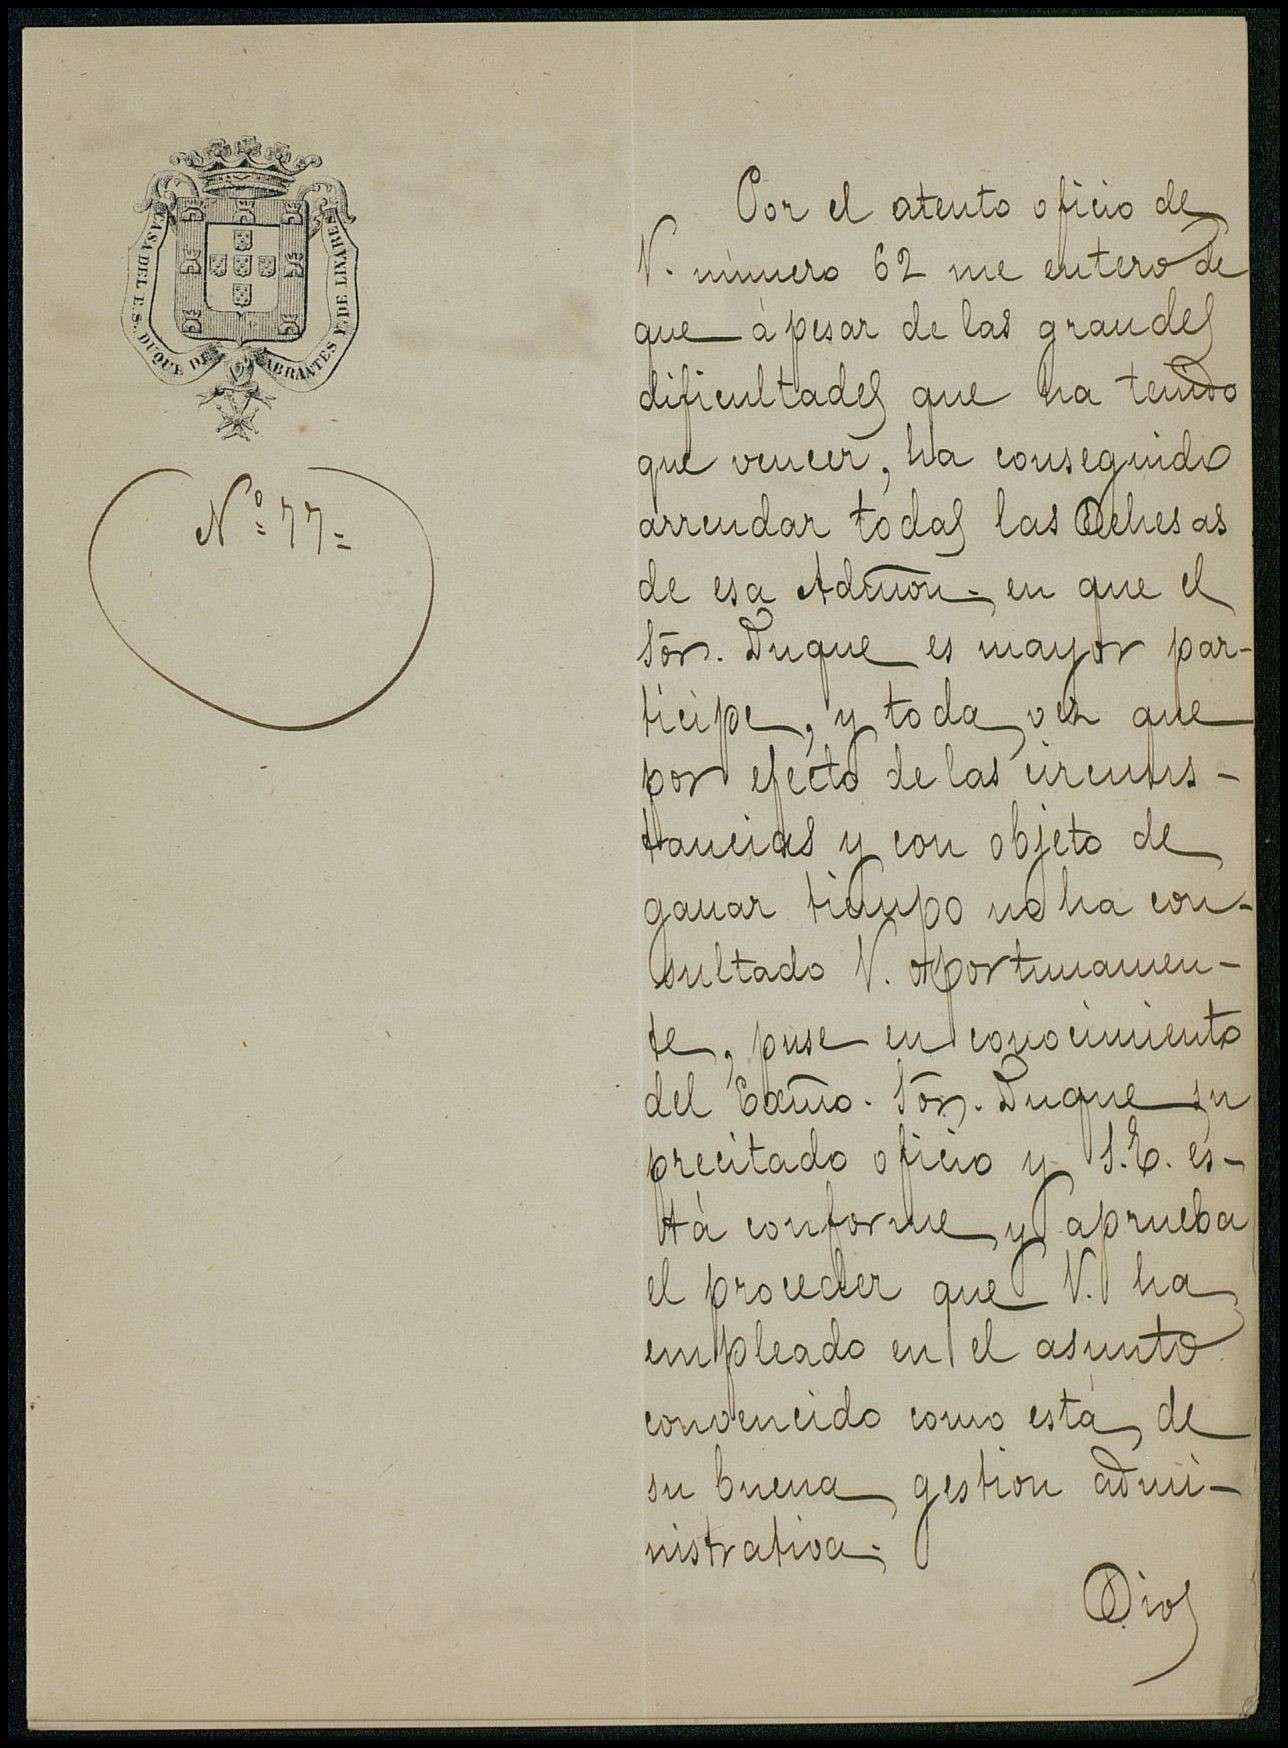 CASA DEL E. S. DUQUE DE ABRANTES Y DE LINARES
Nº= 77=
Por el atento oficio de
V. número 62 me entero de
que á pesar de las grandes
dificultades que ha tenido
que vencer, ha conseguido
arrendar todas las Dehesas
de esa Admōn. en que el
Sōr. Duque es mayor par-
ticipe, y toda vez que
por efecto de las circuns-
tancias y con objeto de
ganar tiempo no ha con-
sultado V. oportunamen-
te, puse en conocimiento
del Excm̄o. Sōr. Duque su
precitado oficio y S.E. es-
tá conforme y aprueba
el proceder que V. ha
empleado en el asunto
convencido como está de
su buena gestion admi-
nistrativa.
Dios